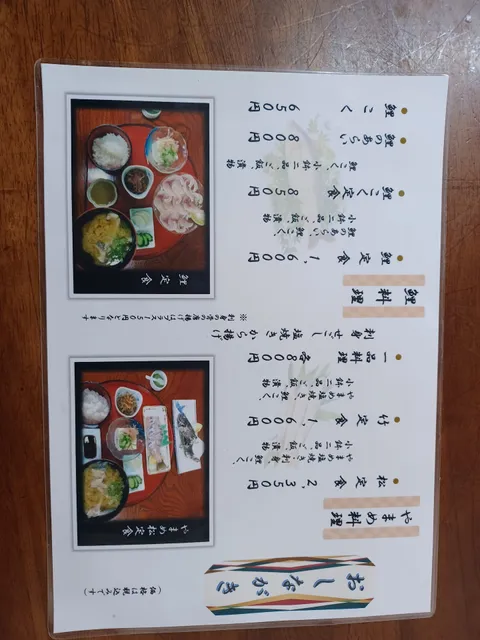 おしながき
やまめ料理
松定食 2,350円
やまめ塩焼き、刺身、鯉こく、
小鉢二品、ご飯、漬物
竹定食 1,600円
やまめ塩焼き、鯉こく、
小鉢二品、ご飯、漬物
一品料理 各800円
刺身 せごし 塩焼き から揚げ
※刺身の骨の唐揚げはプラス50円となります
鯉料理
鯉定食 1,600円
鯉のあらい、鯉こく、
小鉢二品、ご飯、漬物
鯉こく定食 850円
鯉こく、小鉢二品、ご飯、漬物
鯉のあらい 800円
鯉こく 650円
(価格は税込みです)
やまめ松定食
鯉定食